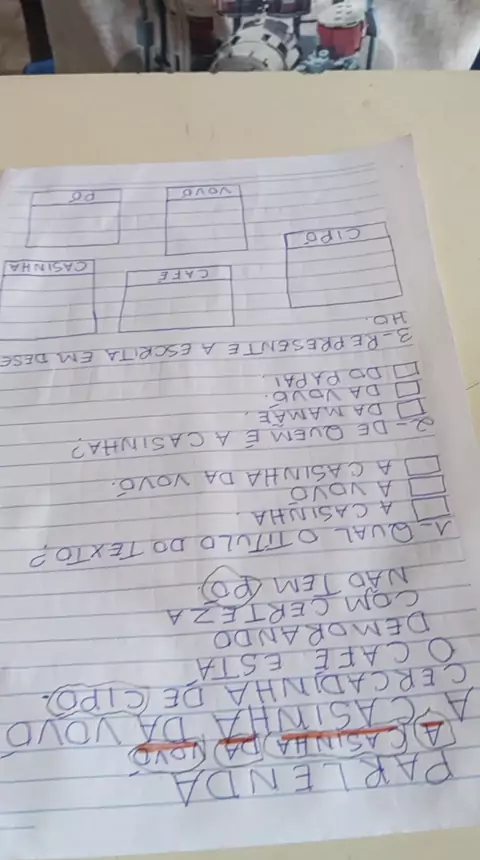 PARLENDA
A CASINHA DA VOVÓ
A CASINHA DA VOVÓ
CERCADINHA DE CIPÓ.
O CAFÉ ESTÁ
DEMORANDO
COM CERTEZA
NÃO TEM PÓ.
1- QUAL O TÍTULO DO TEXTO?
A CASINHA.
A VOVÓ
A CASINHA DA VOVÓ.
2- DE QUEM É A CASINHA?
DA MAMÃE.
DA VOVÓ.
DO PAPAI.
3- REPRESENTE A ESCRITA EM DESE
HO.
CIPÓ
CAFÉ
CASINHA
VOVÓ
PÓ